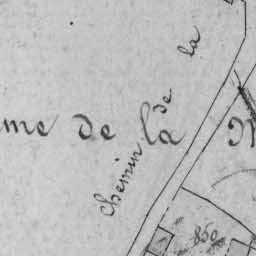 me de la
Chemin de la
850